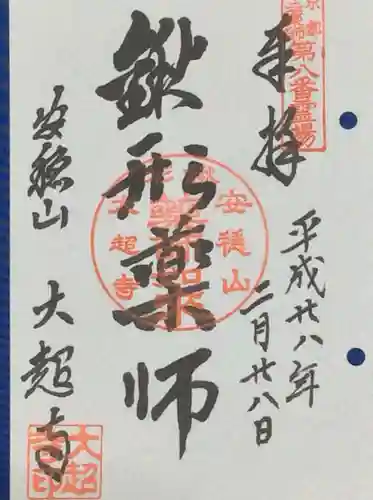 京都
第八番霊場
奉拝
平成廿八年
二月廿八日
鍬形薬師
安穏山
大超寺
安穏山
大超寺
大超
寺印